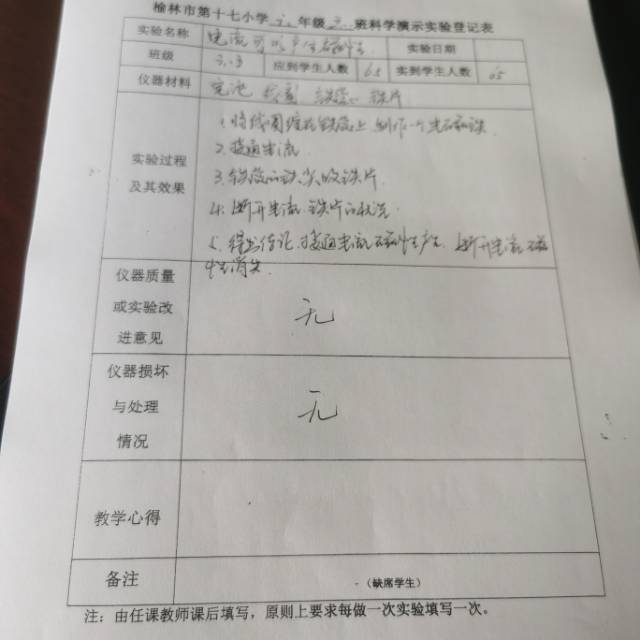 榆林市第十七小学 年级 班科学演示实验登记表
实验名称 电流可以产生磁性 实验日期
班级 应到学生人数 65 实到学生人数 65
仪器材料 电池 铁芯 铁片
实验过程及其效果
1.将线圈绕在铁芯上 制作一个电磁铁
2.接通电流
3.铁芯的铁尖吸铁片
4.断开电流 铁片的状况
5.得出结论 接通电流磁性产生 断开电流磁
性消失
仪器质量
或实验改 无
进意见
仪器损坏
与处理 无
情况
教学心得
备注 (缺席学生)
注:由任课教师课后填写,原则上要求每做一次实验填写一次。